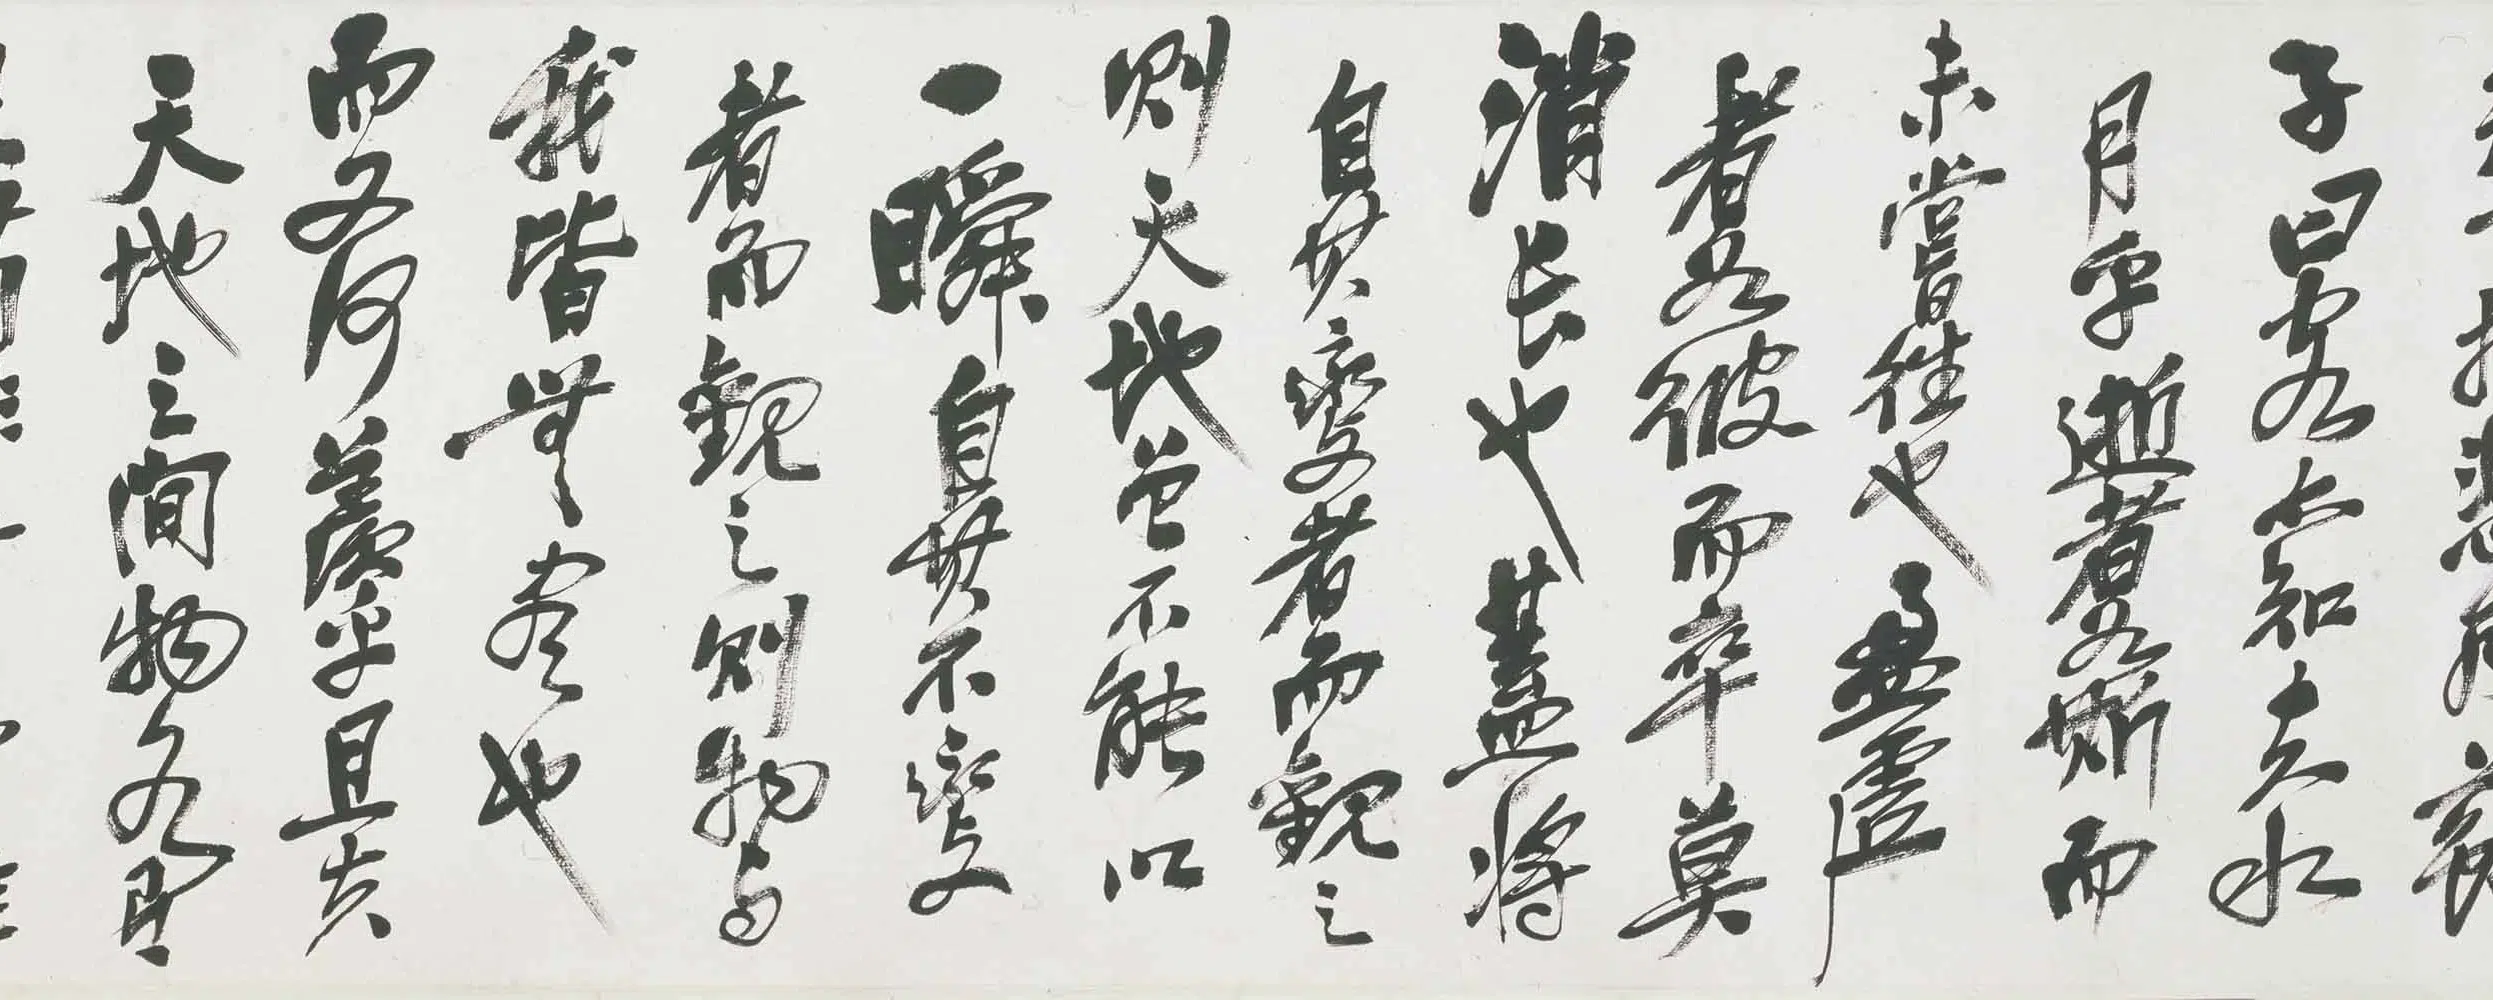 子曰客亦知夫水
月乎逝者如斯而
未嘗往也盈虛
者如彼而卒莫
消長也蓋將
自其變者而觀之
則天地曾不能以
一瞬自其不變
者而觀之則物與
我皆無盡也
而又何羨乎且夫
天地之間物各有